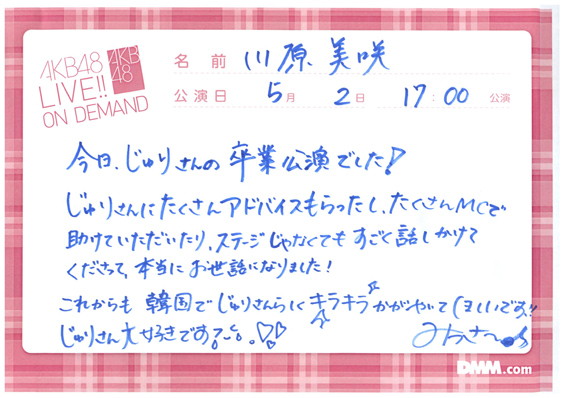 AKB48
LIVE!!
ON DEMAND
AKB
48
名前 川原美咲
公演日 5月 2日 17:00 公演
今日、じゅりさんの卒業公演でした!
じゅりさんにたくさんアドバイスもらったし、たくさんMCで
助けていただいたり、ステージじゃなくてもすごく話しかけて
くださって、本当にお世話になりました!
これからも韓国でじゅりさんらしくキラキラかがやいてほしいです!!
じゅりさん大好きです
みさき
DMM.com